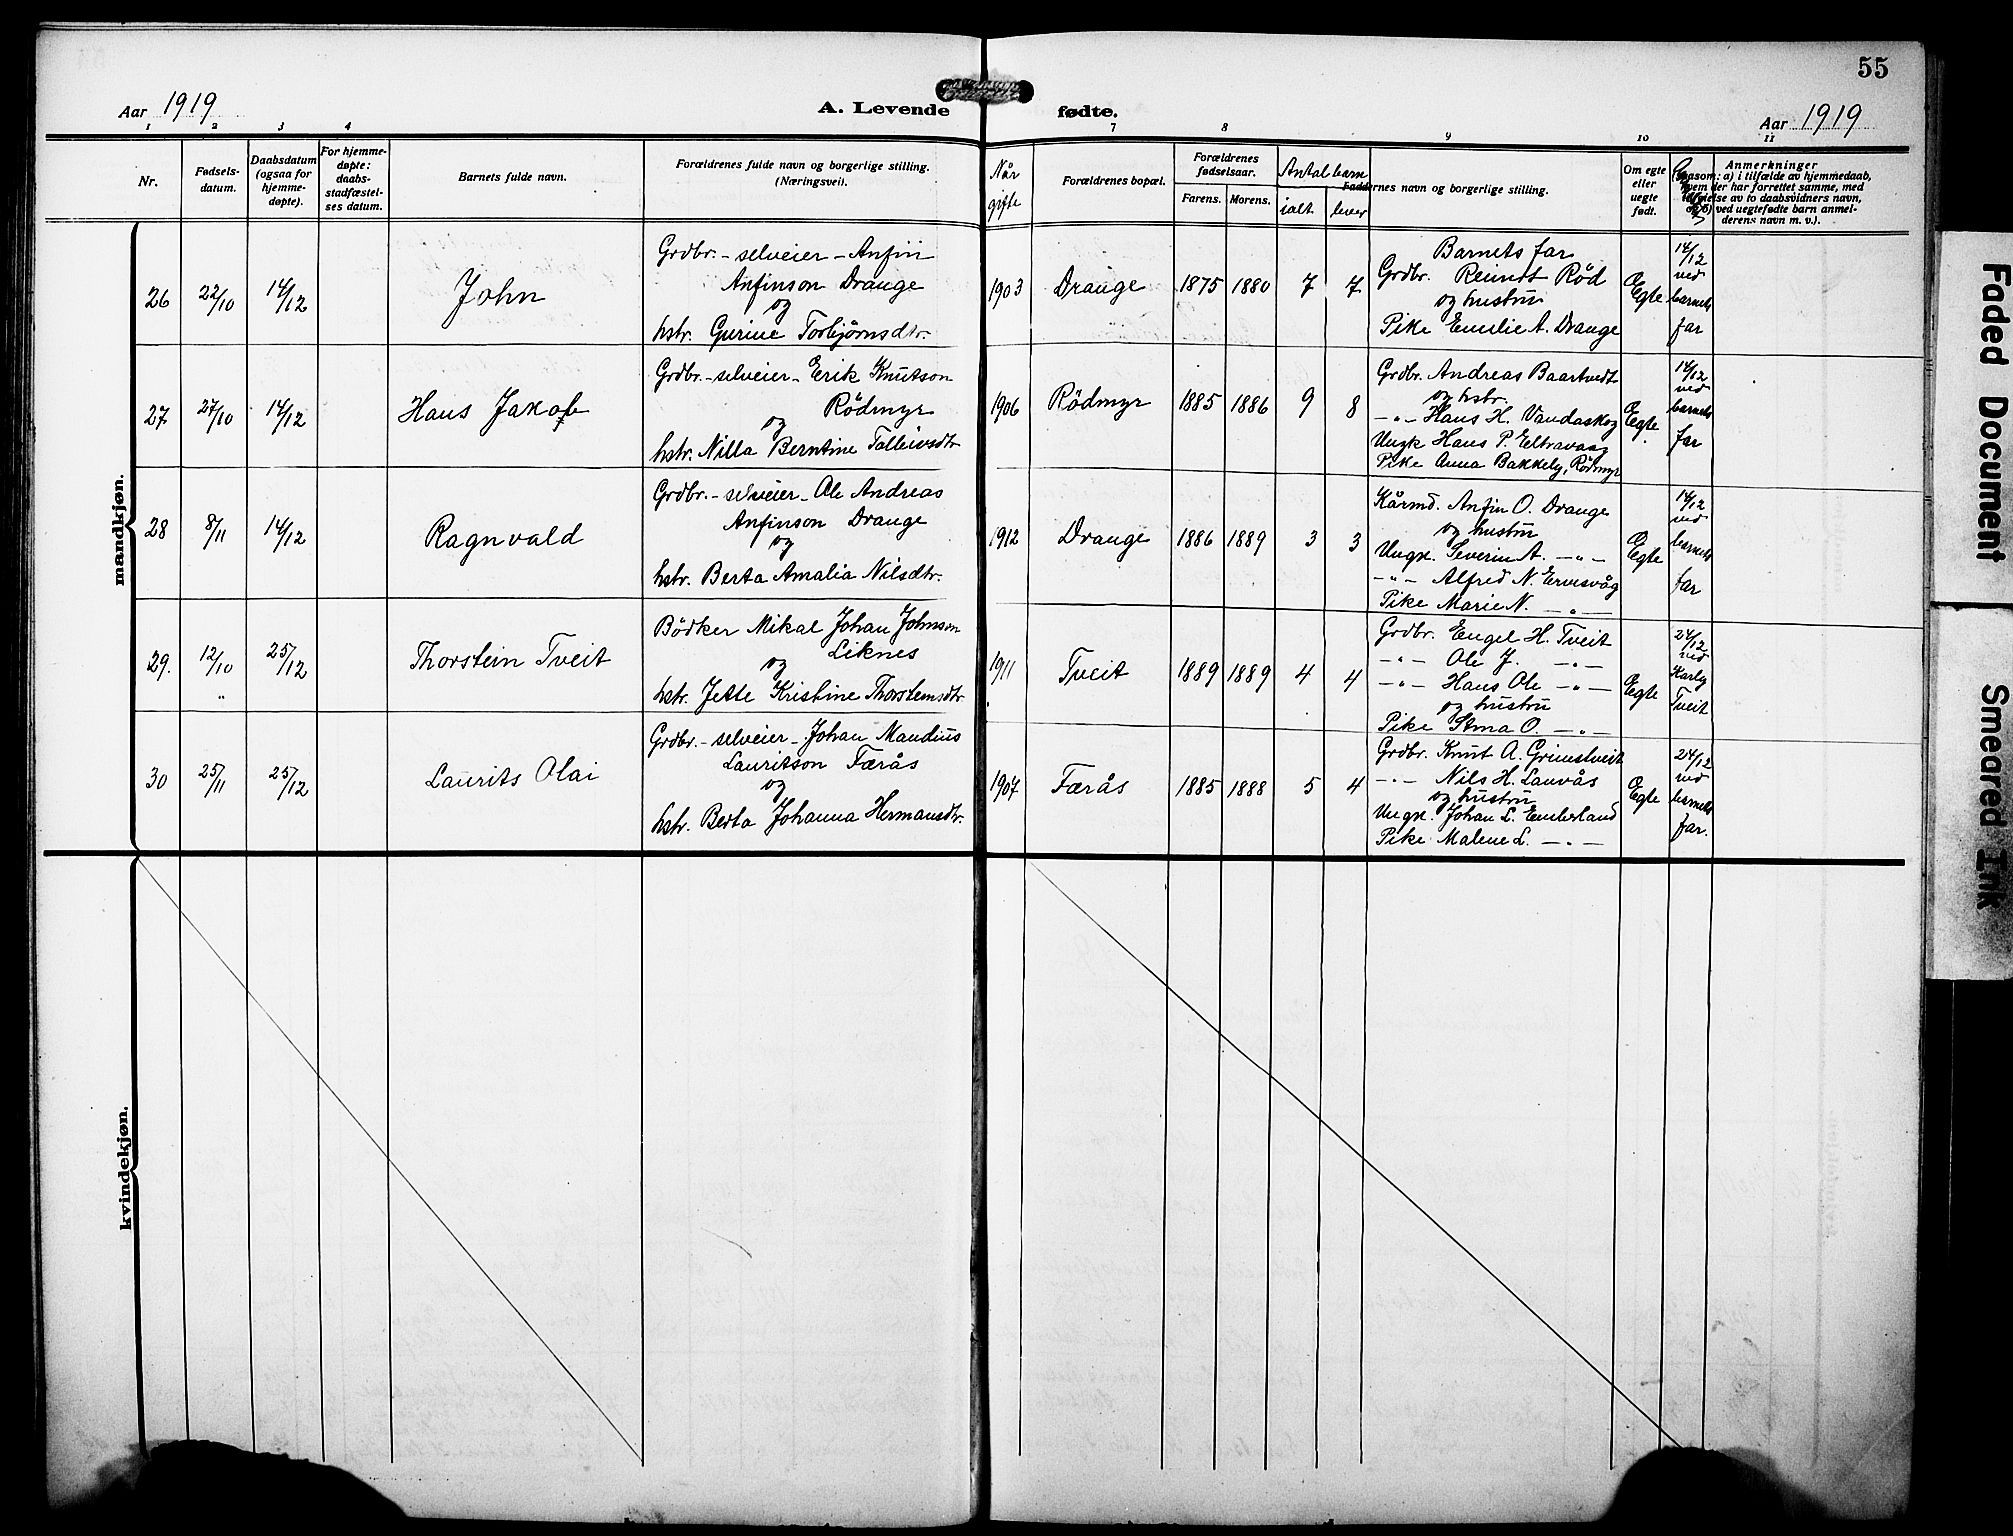 55
Aar 1919
A. Levende fødte.
Aar 1919
1 2 3 4 7 8 9 10 11
Nr.
Fødsels-
datum.
Daabsdatum
(ogsaa for
hjemme-
døpte).
For hjemme-
døpte:
daabs-
stadfæstel-
ses datum.
Barnets fulde navn.
Forældrenes fulde navn og borgerlige stilling.
(Næringsvei).
Når
gifte
Forældrenes bopæl.
Forældrenes
fødselsaar.
Farens. Morens.
Antal barn
ialt lever
Faddernes navn og borgerlige stilling.
Om egte
eller
uegte
født.
Anmerkninger
(saasom: a) i tilfælde av hjemmedaab,
hvem der har forrettet samme, med
tilføielse av to daabsvidners navn,
og b) ved uegtefødte barn anmel-
derens navn m. v.).
mandkjøn.
26
22/10
14/12
John
Grdbr. - selveier - Anfin
Anfinson Drange
og
hstr. Gurine Torbjørnsdtr.
1903
Drange
1875 1880 7 7
Barnets far
Grdbr. Reinert Rød
og hustru
Pike Emilie A. Drange
Egte
14/12
ved
barnets
far
27
27/10
14/12
Hans Jakob
Grdbr. - selveier - Erik Knutson
Rödmyr
og
hstr. Nilla Berntine Talleivsdtr
1906
Rödmyr
1885 1886 9 8
Grdbr. Andreas Baartvedt
og hstr.
-"- Hans H. Vandaskog
Ungk Hans P. Eltravaag
Pike Anna Bakkely, Rödmyr
Egte.
14/12
ved
barnets
far
28
8/11
14/12
Ragnvald
Grdbr. - selveier - Ole Andreas
Anfinson Drange
og
hstr. Berta Amalia Nilsdtr.
1912
Drange
1886 1889 3 3
Kårmd. Anfin O. Drange
og hustru
Ungk. Severin A. -"-
-"- Alfred N. Ervesvåg
Pike Marie N. -"-
Egte
14/12
ved
barnets
far
29.
12/10
25/12
Thorstein Tveit
Bödker Mikal Johan Johnson
Liknes
og
hstr. Jette Kristine Thorsteinsdtr
1911
Tveit
1889 1889 4 4
Grdbr. Engel H. Tveit
-"- Ole J. -"-
-"- Hans Ole -"-
og hustru
Pike Stina O. -"-
Egte
24/12
ved
Tveit
30
25/11
25/12
Laurits Olai
Grdbr. - selveier - Johan Mandius
Lauritson Færås
og
hstr. Berta Johanna Hermansdtr.
1907
Færås
1885 1888 5 4
Grdbr. Knut A. Grimstveit
-"- Nils H. Lauvås
og hustru
Ungk. Johan L. Emberland
Pike Malene L. -"-
Egte
24/12
ved
barnets
far.
kvindekjøn.
Faded Document
Smeared Ink